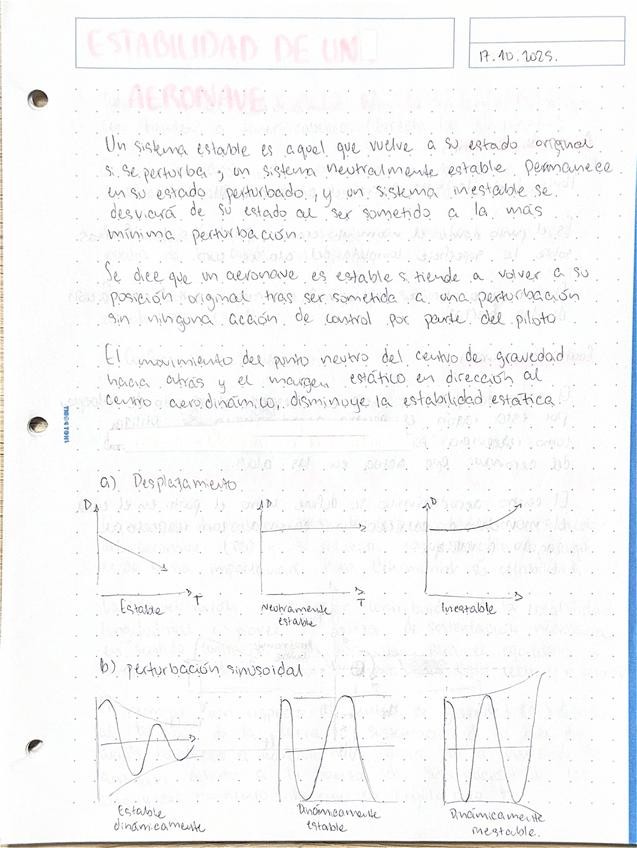 ESTABILIDAD DE UN
17.10.2025.
AERONAVE
Un sistema estable es aquel que vuelve a su estado original
si se perturba, un sistema neutralmente estable permanece
en su estado perturbado, y un sistema inestable se
desviará de su estado al ser sometido a la más
mínima perturbación.
Se dice que un aeronave es estable si tiende a volver a su
posición original tras ser sometida a una perturbación
sin ninguna acción de control por parte del piloto
El movimiento del punto neutro del centro de gravedad
hacia atrás y el margen estático en dirección al
centro aerodinámico, disminuye la estabilidad estática.
a) Desplazamiento
D D D
Estable T Neutramente estable T Inestable
b) perturbación sinusoidal
Estable Dinámicamente Dinámicamente
dinámicamente estable inestable.